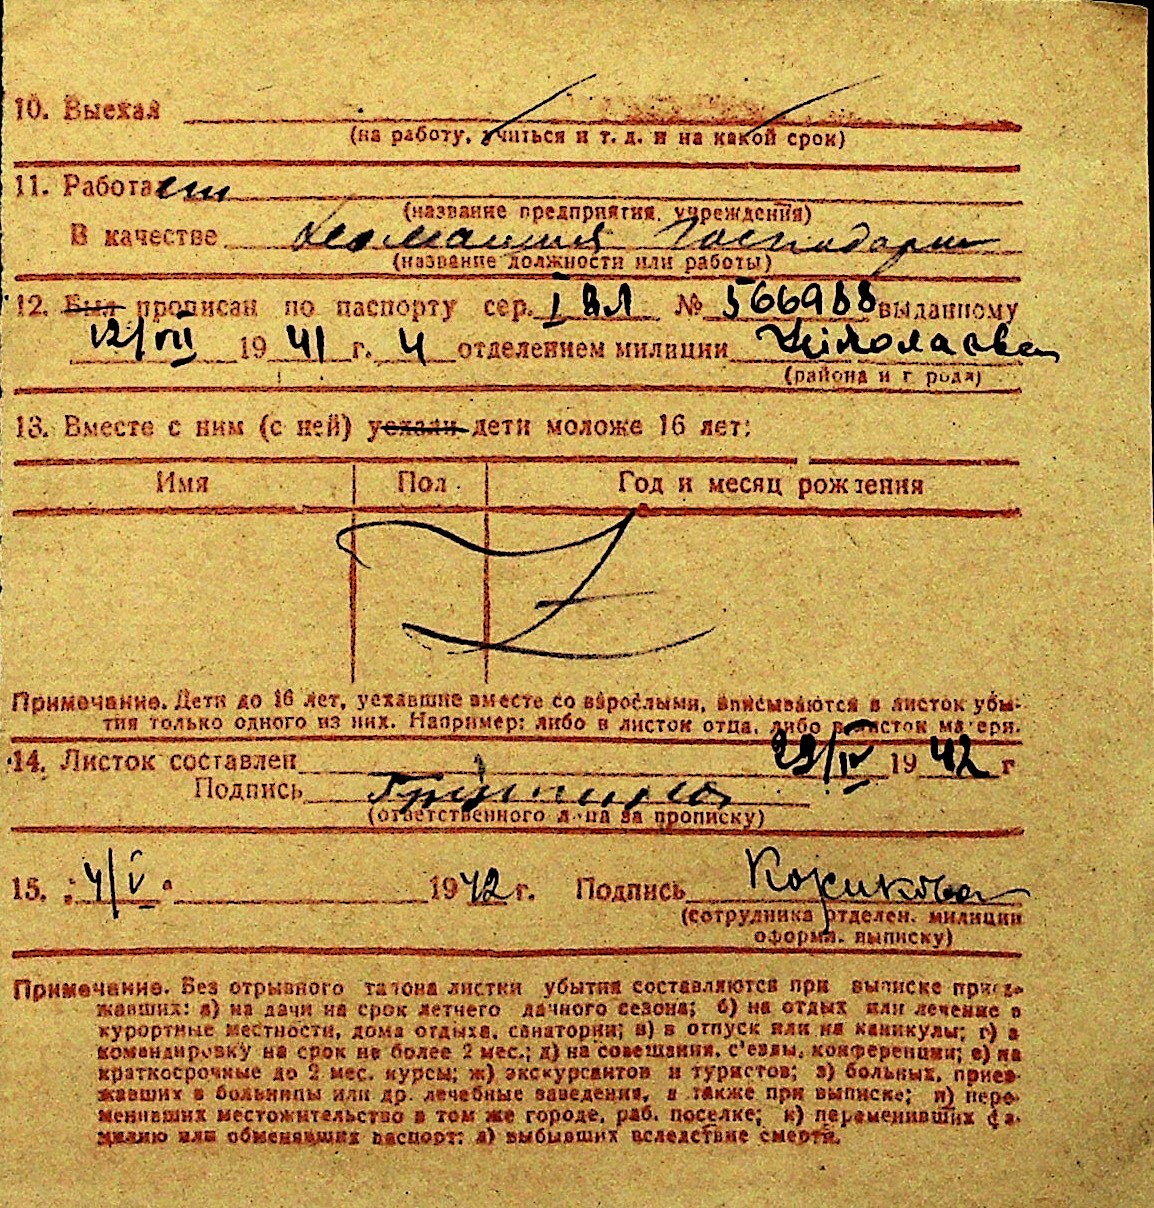 10. Выехал
(на работу, учиться и т. д. и на какой срок)
11. Работает
(название предприятия, учреждения)
В качестве домашняя господарка
(название должности или работы)
12. Был прописан по паспорту сер. I ВЛ № 566988 выданному
12/VII 1941 г. 4 отделением милиции Николаева
(района и города)
13. Вместе с ним (с ней) уехали дети моложе 16 лет:
Имя Пол Год и месяц рождения
Примечание. Дети до 16 лет, уехавшие вместе со взрослыми, вписываются в листок убы-
тия только одного из них. Например: либо в листок отца, либо в листок матери.
14. Листок составлен 29/IV 1942 г
Подпись
(ответственного лица за прописку)
15. 4/V 1942 г. Подпись Кожикова
(сотрудника отделен. милиции
оформл. выписку)
Примечание. Без отрывного талона листки убытия составляются при выписке приез-
жавших: а) на дачи на срок летнего дачного сезона; б) на отдых или лечение в
курортные местности, дома отдыха, санатории; в) в отпуск или на каникулы; г) в
командировку на срок не более 2 мес.; д) на совещания, с'езды, конференции; е) на
краткосрочные до 2 мес. курсы; ж) экскурсантов и туристов; з) больных, приез-
жавших в больницы или др. лечебные заведения, а также при выписке; и) пере-
менивших местожительство в том же городе, раб. поселке; к) переменивших фа-
милию или обменявших паспорт; л) выбывших вследствие смерти.